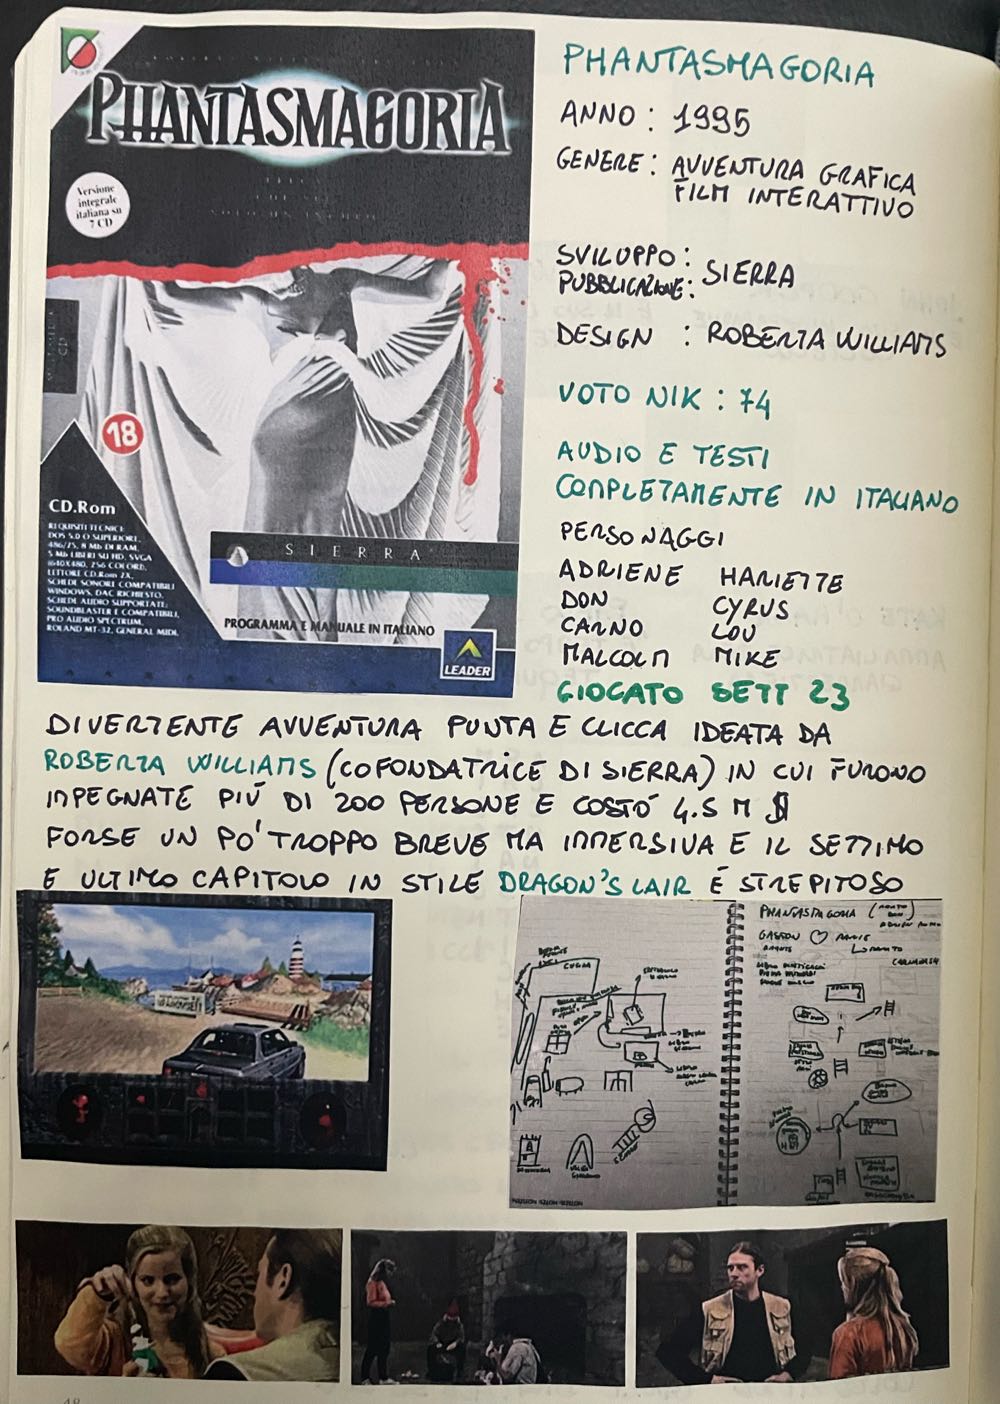 PHANTASMAGORIA
Versione
integrale
italiana su
7 CD
18
CD.Rom
REQUISITI TECNICI:
DOS 5.0 O SUPERIORE,
486/25, 8 Mb DI RAM,
5 Mb LIBERI SU HD, SVGA
(640X480, 256 COLORI),
LETTORE CD.Rom 2X,
SCHEDE SONORI COMPATIBILI
WINDOWS, DAC RICHIESTO.
SCHEDE AUDIO SUPPORTATE:
SOUNDBLASTER E COMPATIBILI,
PRO AUDIO SPECTRUM,
ROLAND MT-32, GENERAL MIDI.
SIERRA
PROGRAMMA E MANUALE IN ITALIANO
LEADER
PHANTASMAGORIA
ANNO : 1995
GENERE : AVVENTURA GRAFICA
FILM INTERATTIVO
SVILUPPO :
PUBBLICAZIONE : SIERRA
DESIGN : ROBERTA WILLIAMS
VOTO NIK : 74
AUDIO E TESTI
COMPLETAMENTE IN ITALIANO
PERSONAGGI
ADRIENE HARIETTE
DON CYRUS
CARNO LOU
MALCOLM MIKE
GIOCATO SETT 23
DIVERTENTE AVVENTURA PUNTA E CLICCA IDEATA DA
ROBERTA WILLIAMS (COFONDATRICE DI SIERRA) IN CUI FURONO
IMPEGNATE PIÚ DI 200 PERSONE E COSTÓ 4.5 M $
FORSE UN PO' TROPPO BREVE MA IMMERSIVA E IL SETTIMO
E ULTIMO CAPITOLO IN STILE DRAGON'S LAIR É STREPITOSO
PHANTASMAGORIA